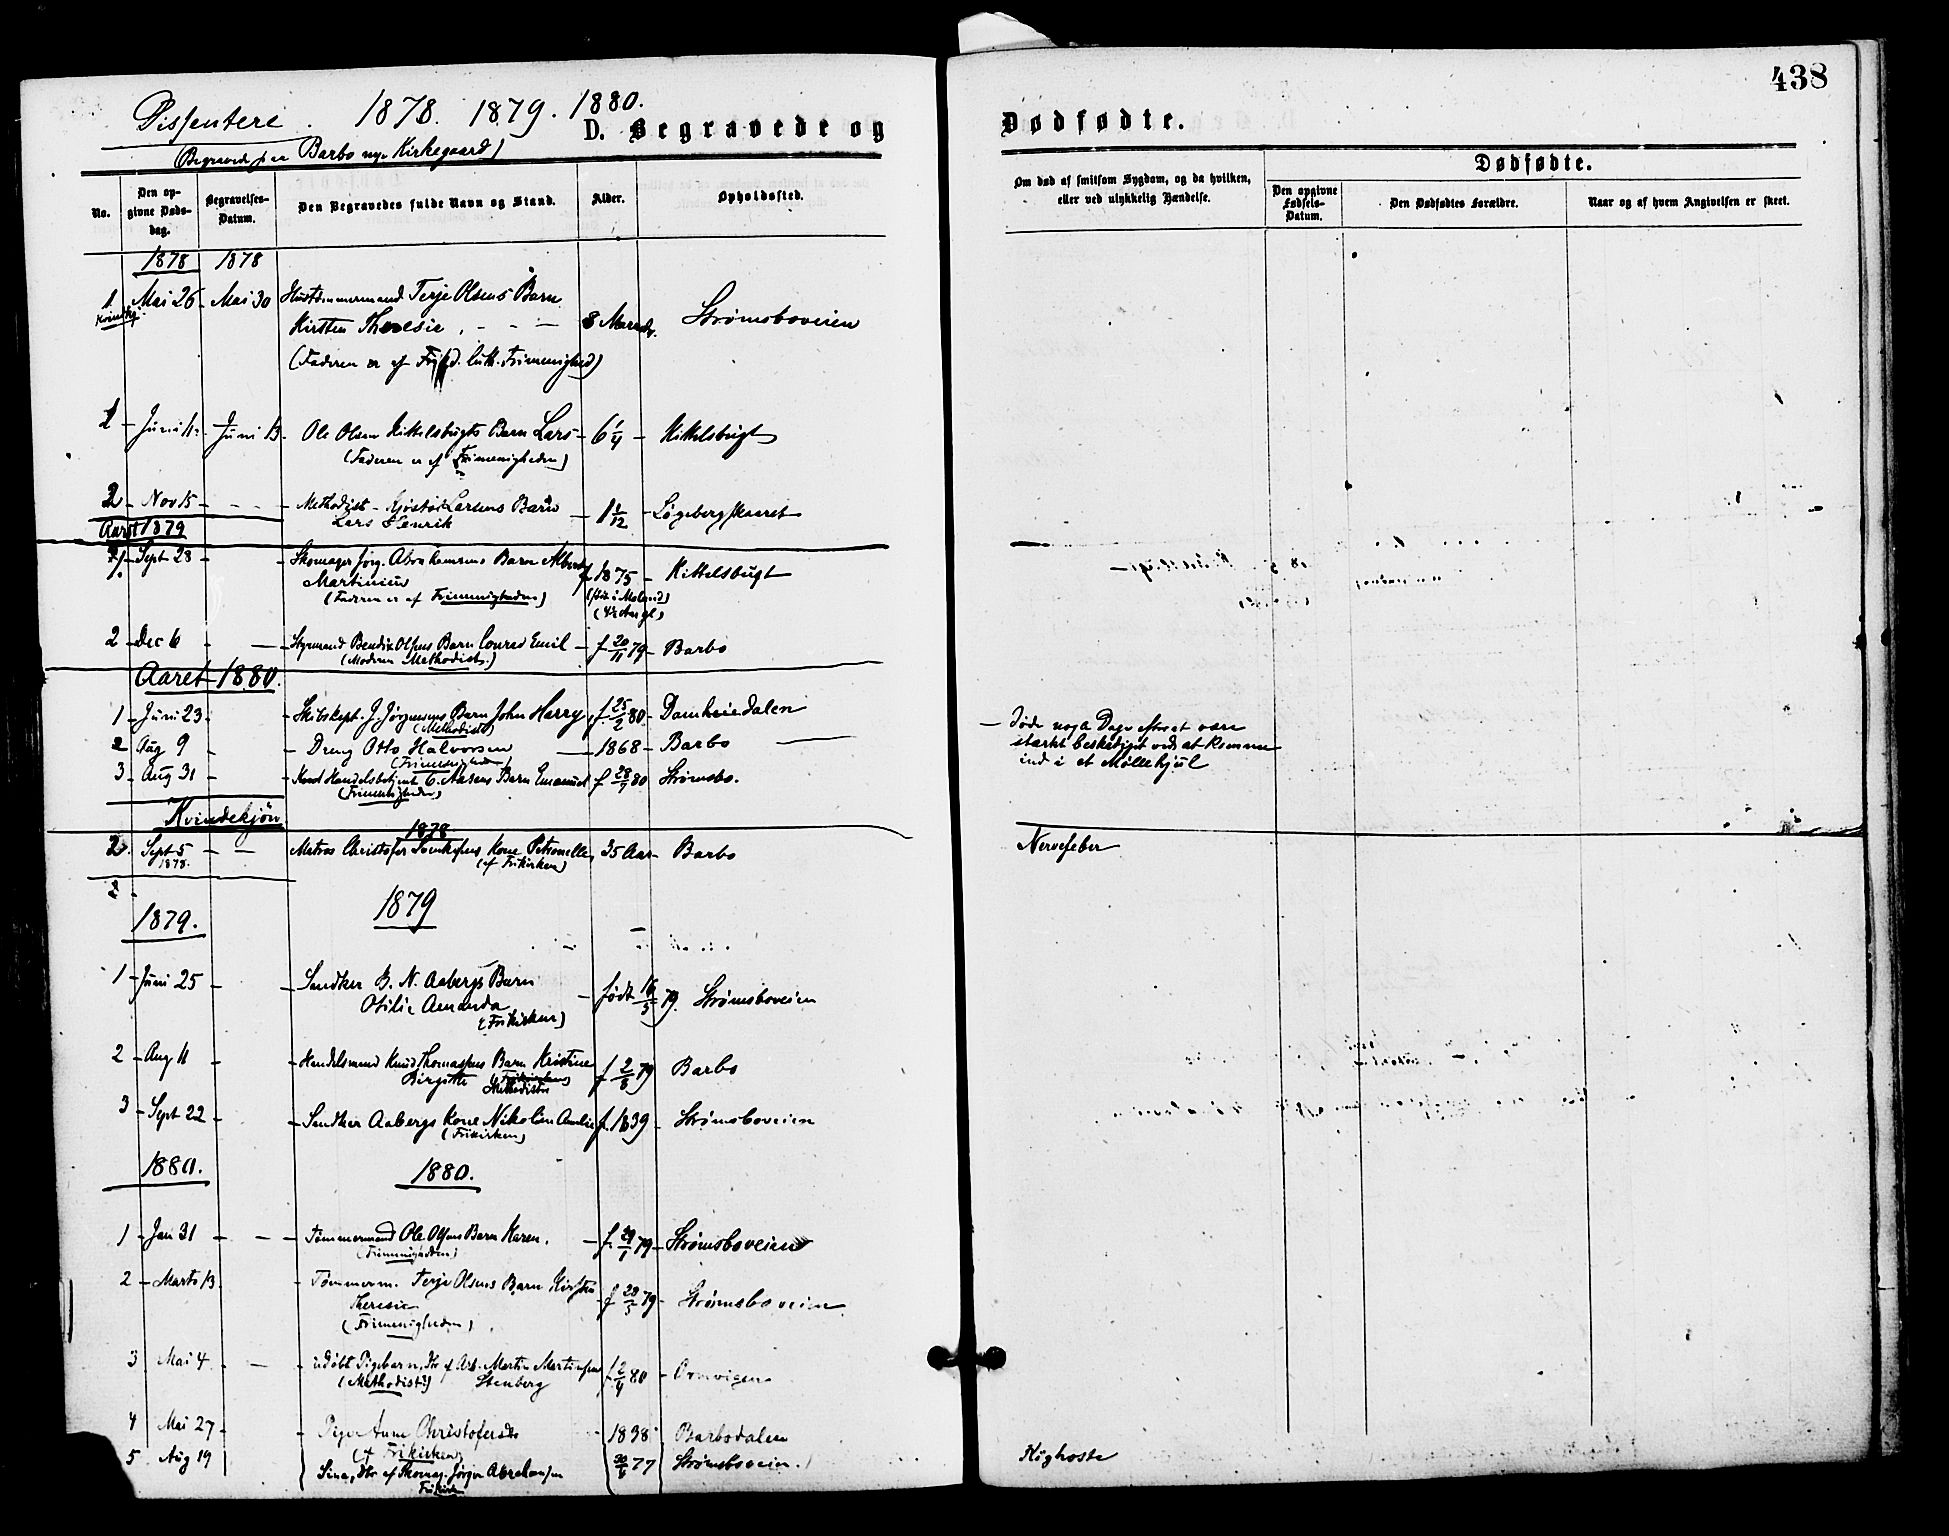 438
Dissentere. 1878. 1879. 1880.
D. Begravede og Dødfødte.
(Begravede paa Barbo nye Kirkegaard)
No.
Den opgivne Dødsdag.
Begravelses-Datum.
Den Begravedes fulde Navn og Stand.
Alder.
Opholdssted.
Om død af smitsom Sygdom, og da hvilken, eller ved ulykkelig Hændelse.
Dødfødte.
Den opgivne Fødsels-Datum.
Den Dødfødtes Forældre.
Naar og af hvem Angivelsen er skeet.
1878 1878
1 Mai 26 - Mai 30 Hustømmermand Terje Olsens Barn
Kvindkj. Kirsten Theresie, - - - 8 Maaneder. Strømsboveien
(Faderen er af luth. Frimenighed)
1 - Juni 11 - Juni 13 - Ole Olsen Kittelsbugts Barn Lars - 6 1/4 - Kittelsbugt
(Faderen er af Frimenigheden)
2 - Nov 15 - - - Methodist Larsens Barn - 1 1/12 - Løgebergskaaret
Lars Henrik
Aaret 1879
1. - Sept 28 - - Skomager Jørg. Abrahamsens Barn Albert f 1875 - Kittelsbugt
Martinius
(Faderen er af Frimenigheden)
2 - Dec 6 - - Styrmand Bendix Olsens Barn Conrad Emil - f 20/11 79 - Barbo
(Moderen Methodist.)
Aaret 1880.
1 - Juni 23 - - Skibskapt. J. Jørgensens Barn John Harry, f. 25/2 80. - Damhuiedalen
(Methodist)
2 Aug 9 - - Dreng Otto Halvorsen - 1868 - Barbo — - Døde nogle Dage efter at være
(Frimenigheden) stærkt beskadiget ved at komme
ind i et Møllehjul
3 - Aug 31 - - Handelsbetjent C. Aasens Barn Emanuel f 80 Strømsbo.
(Frimenigheden)
Kvindekjøn
1878
2. Sept 5 - - Matros Christofer Svenkesens Kone Petronelle, 35 Aar - Barbo Nervefeber
1878. (af Frikirken)
2
1879. 1879
1 - Juni 25 - - Snedker B. N. Aabergs Barn - født 16/5 79. Strømsboveien
Otilie Amanda
(Frikirken)
2 - Aug 11 - - Handelsmand Knud Thomassens Barn Kristine f 2/8 79 Barbo
Birgitte (Frikirken)
Methodist
3 - Sept 22 - - Snedker Aabergs Kone Nikoline Amalie f. 1839 - Strømsboveien
(Frikirken)
1880. 1880.
1 - Jan 31 - - - Tømmermand Ole Olsens Barn Karen. - f. 79 - Strømsboveien
(Frimenigheden)
2 - Marts 13 - Tømmerm. Terje Olsens Barn Kirsten - f 79 - Strømsboveien
Theresie
(Frimenigheden)
3 Mai 4 - - - udøbt Pigebarn, Dtr af Arb. Martin Martinsen f 2/4 80 -
(Methodist) Stenberg
4 Mai 27 - - Pige Anne Christofersdtr 1838 Barbodalen
(af Frikirken)
5 Aug 19 Sina, Dtr af Skomag. Jørgen Abrahamsen 77 Strømsboveien. Kighoste
Frikirk